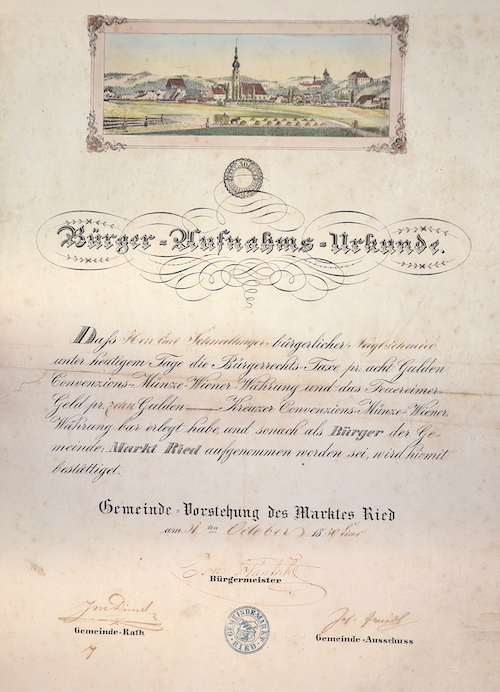 30
Bürger-Aufnahms-Urkunde.
Daſs Herr Schmidlinger bürgerlicher
unter heutigem Tage die Bürgerrechts-Taxe pr. acht Gulden
Convenzions-Münze-Wiener-Währung und das Feuereimer-
Geld pr. zehn Gulden — Kreuzer Convenzions-Münze-Wiener
Währung bar erlegt habe, und sonach als Bürger der Ge-
meinde: Markt Ried aufgenommen worden sei, wird hiemit
bestättiget.
Gemeinde-Vorstehung des Marktes Ried
am 31 ten October 1850
Bürgermeister
Gemeinde-Rath
GEMEINDE MARKT RIED
Gemeinde-Ausschuss